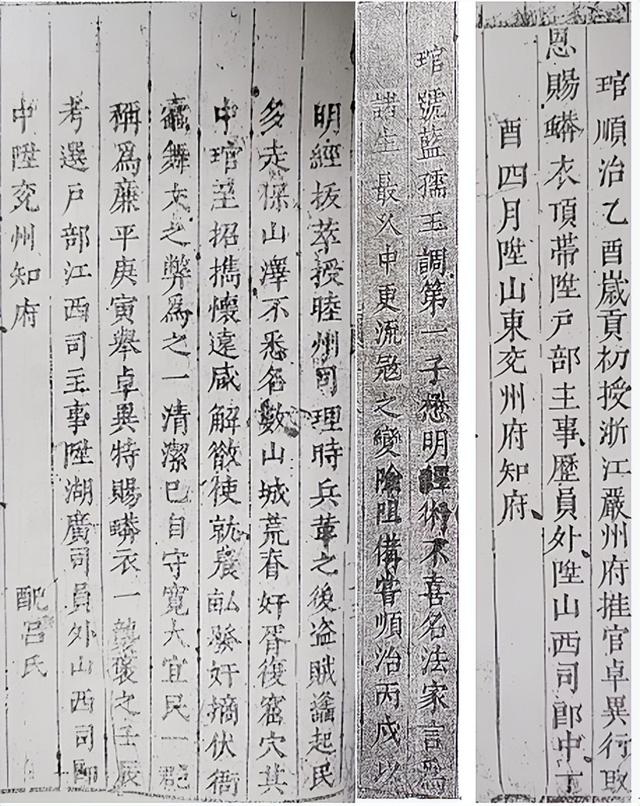 琯順治乙酉歲貢初授浙江嚴州府推官卓異行取
恩賜蟒衣頂帶陞戶部主事歷員外陞山西司郎中丁
酉四月陞山東兗州府知府
琯號藍孺玉調第一子懋明經術不喜名法家言為
諸生最久中更流寇之變險阻備嘗順治丙戌以
明經拔萃授睦州司理時兵革之後盜賊蠭起民
多走保山澤不悉名數山城荒舂奸胥復窟穴其
中琯至招攜懷遠咸解斂使就農畝發奸摘伏衙
蠹舞文之弊為之一清潔已自守寬大宜民一郡
稱為廉平庚寅舉卓異特賜蟒衣一襲褒之壬辰
考選戶部江西司主事陞湖廣司員外山西司郎
中陞兗州知府 配呂氏